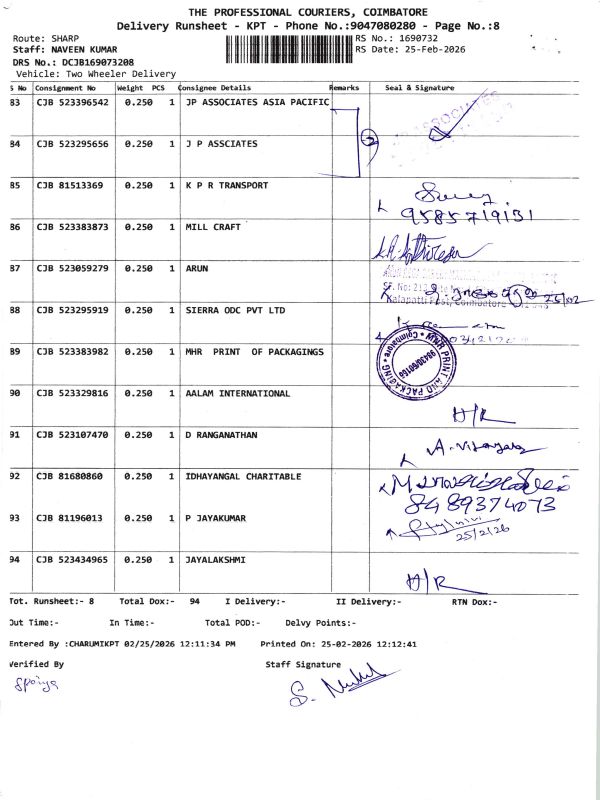 THE PROFESSIONAL COURIERS, COIMBATORE
Delivery Runsheet - KPT - Phone No.:9047080280 - Page No.:8
Route: SHARP RS No.: 1690732
Staff: NAVEEN KUMAR RS Date: 25-Feb-2026
DRS No.: DCJB169073208
Vehicle: Two Wheeler Delivery
S No Consignment No Weight PCS Consignee Details Remarks Seal & Signature
83 CJB 523396542 0.250 1 JP ASSOCIATES ASIA PACIFIC
2
84 CJB 523295656 0.250 1 J P ASSCIATES
85 CJB 81513369 0.250 1 K P R TRANSPORT
9585719131
86 CJB 523383873 0.250 1 MILL CRAFT
87 CJB 523059279 0.250 1 ARUN
25/02
88 CJB 523295919 0.250 1 SIERRA ODC PVT LTD
89 CJB 523383982 0.250 1 MHR PRINT OF PACKAGINGS
MHR PRINT AND PACKAGING Coimbatore
90 CJB 523329816 0.250 1 AALAM INTERNATIONAL
H/R
91 CJB 523107470 0.250 1 D RANGANATHAN
92 CJB 81680860 0.250 1 IDHAYANGAL CHARITABLE
8489374073
93 CJB 81196013 0.250 1 P JAYAKUMAR
25/2/26
94 CJB 523434965 0.250 1 JAYALAKSHMI
H/R
Tot. Runsheet:- 8 Total Dox:- 94 I Delivery:- II Delivery:- RTN Dox:-
Out Time:- In Time:- Total POD:- Delvy Points:-
Entered By :CHARUMIKPT 02/25/2026 12:11:34 PM Printed On: 25-02-2026 12:12:41
Verified By Staff Signature